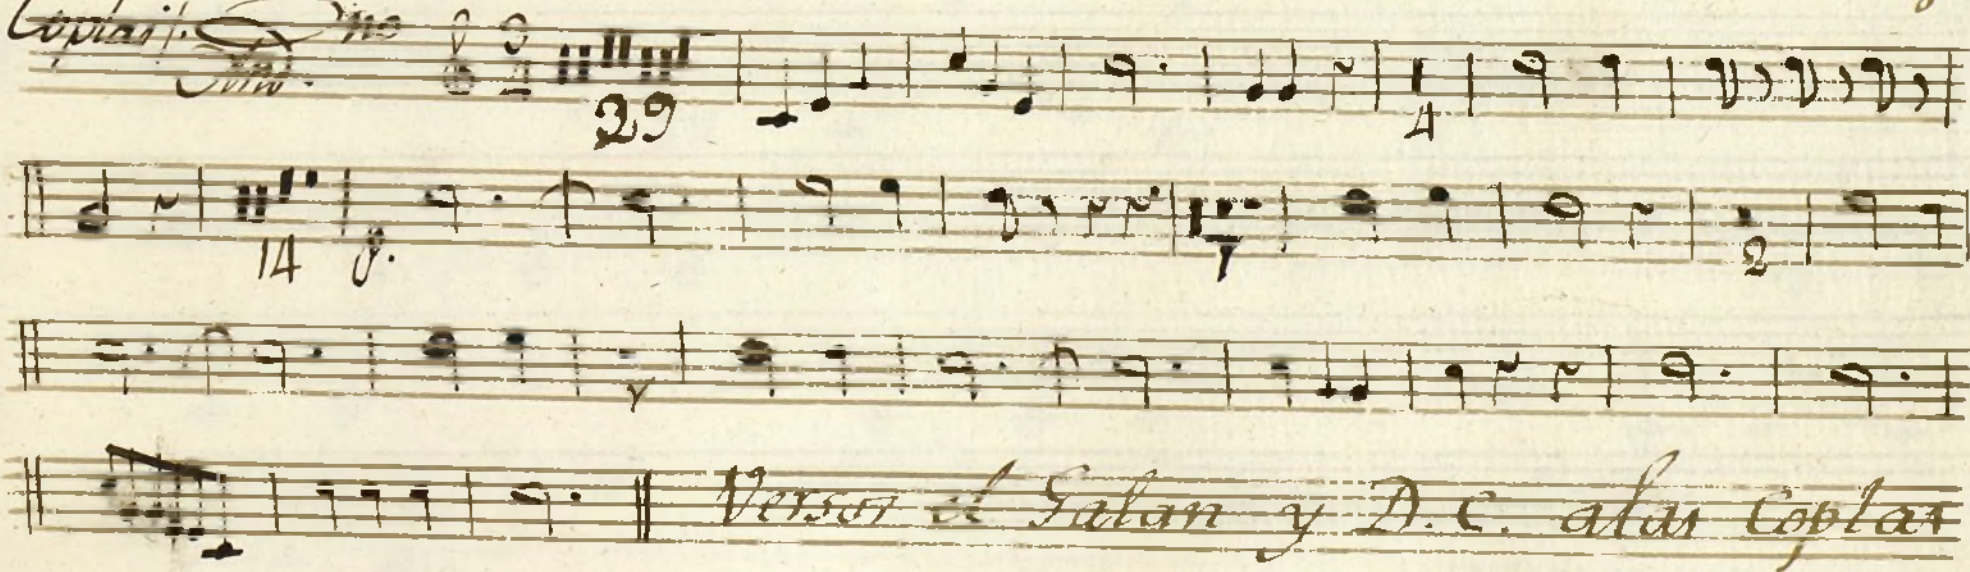 Coplas
29
4
14 p.
7
2
Versos el Galan y D. C. alas Coplas